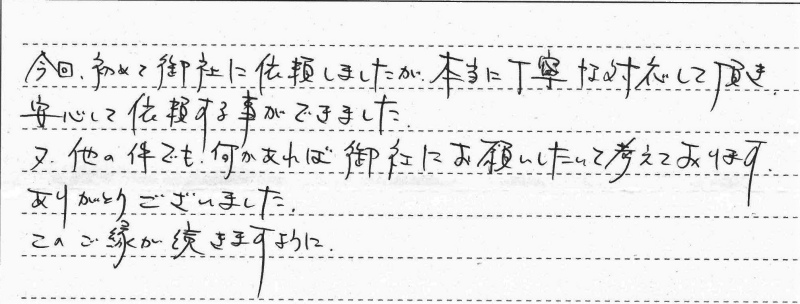 今回、初めて御社に依頼しましたが、本当に丁寧な対応して頂き、
安心して依頼する事ができました。
又、他の件でも、何かあれば御社にお願いしたいて考えております。
ありがとうございました。
このご縁が続きますように。